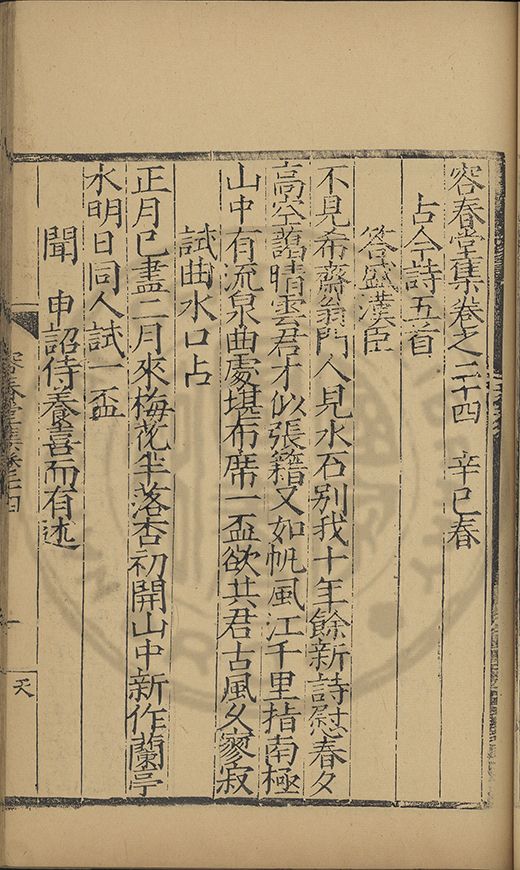 容春堂集卷之二十四　辛巳春
占今詩五首
答盛漢臣
不見希齋翁門人見水石别我十年餘新詩慰春夕
高空藹晴雲君才似張籍又如帆風江千里指南極
山中有流泉曲處堪布席一盃欲共君古風久寥寂
試曲水口占
正月已盡二月來梅花半落杏初開山中新作蘭亭
水明日同人試一盃
聞　申詔侍養喜而有述
容春堂集卷二十四
一
天